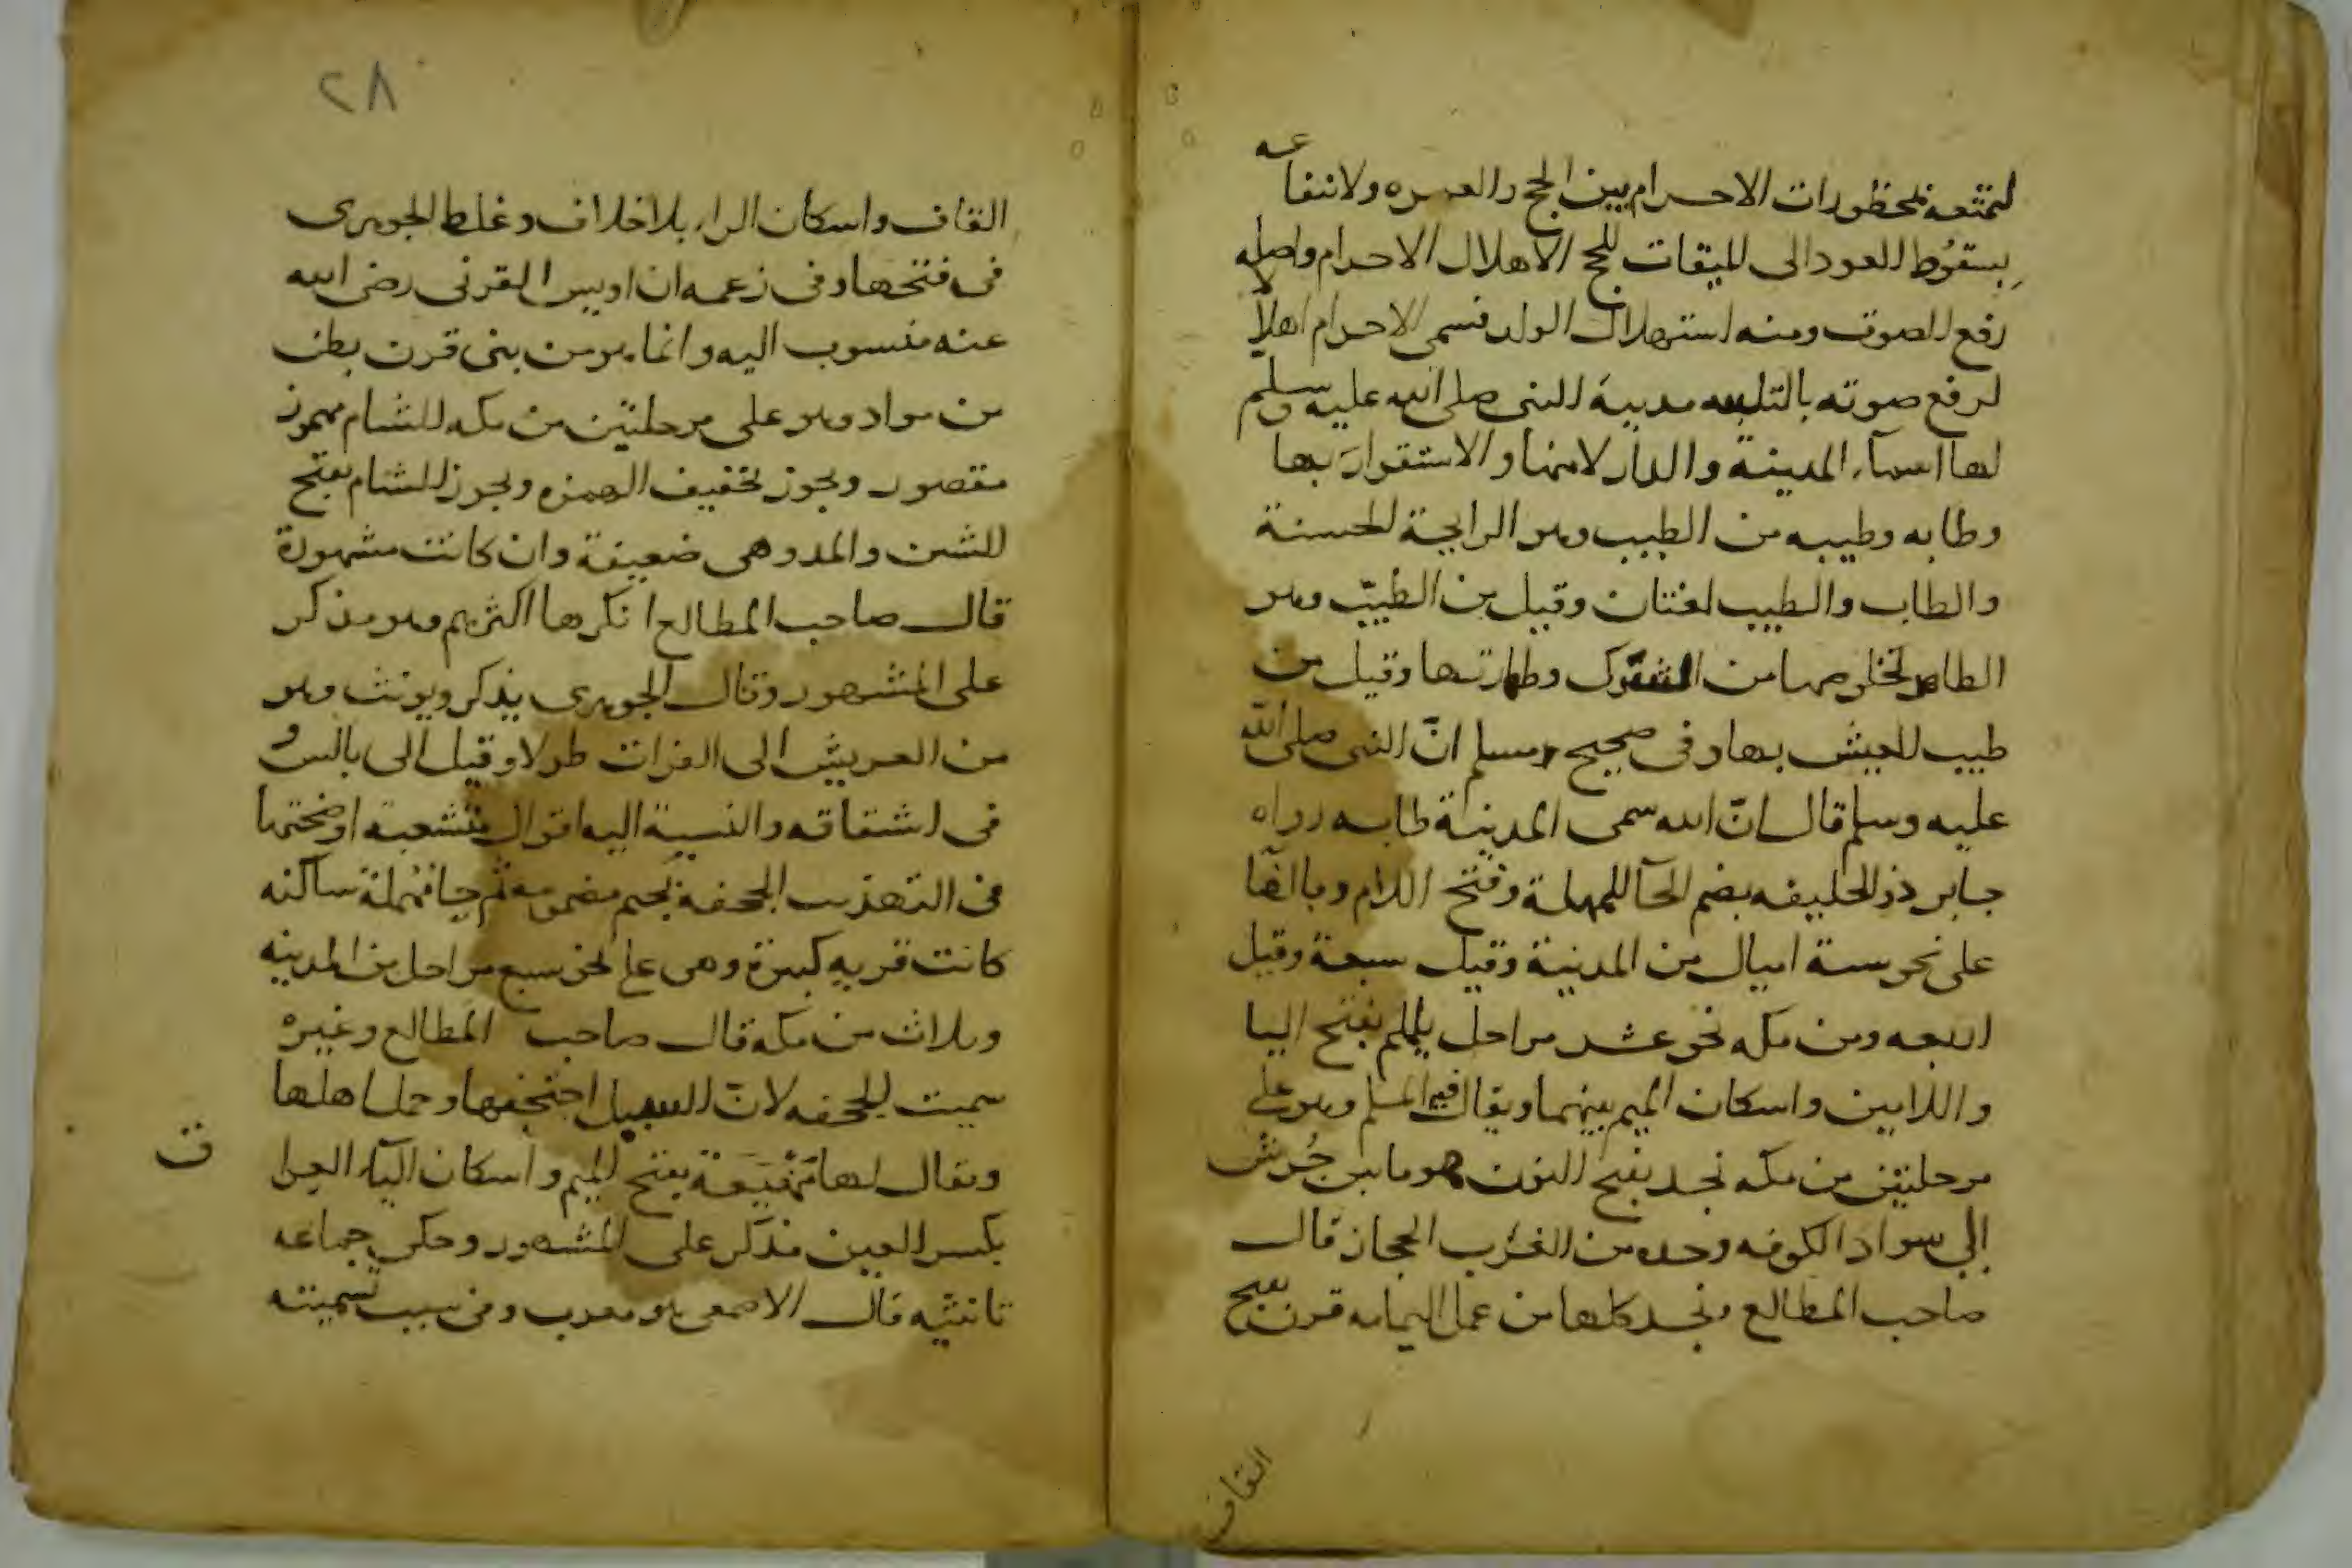 لتمتعه بمحظورات الاحرام بين الحج والعمره ولانتفاعه
بسقوط العود الى الميقات للحج الاهلال الاحرام واصله
رفع الصوت ومنه استهلال الولد فسمى الاحرام اهلالا
لرفع صوته بالتلبيه مدينة النبى صلى الله عليه وسلم
لها اسماء المدينة والدار لامنها والاستقرار بها
وطابه وطيبه من الطيب وهو الرايحة الحسنة
والطاب والطيب لغتان وقيل من الطيّب وهو
الطاهر لخلوصها من الشرك وطهارتها وقيل من
طيب العيش بها وفى صحيح مسلم انّ النبى صلى الله
عليه وسلم قال انّ الله سمى المدينة طابه رواه
جابر ذو الحليفه بضم الحآ المهملة وفتح اللام وبالفا
على نحو ستة اميال من المدينة وقيل سبعة وقيل
اربعه ومن مكه نحو عشر مراحل يلملم بفتح اليا
واللامين واسكان الميم بينهما ويقال فيه الملم وهو على
مرحلتين من مكه نجد بفتح النون هو ما بين جُرش
إلى سواد الكوفه وحده من الغرب الحجاز قال
صاحب المطالع ونجد كلها من عمل اليمامه قرن بفتح
القاف
٢٨
القاف واسكان الراء بلا خلاف وغلط الجوهرى
فى فتحها وفى زعمه ان اويس القرنى رضى الله
عنه منسوب اليه وانما هو من بنى قرن بطن
من مراد وهو على مرحلتين من مكه الشام مهموز
مقصور ويجوز تخفيف الهمزه ويجوز الشام بفتح
الشين والمد وهى ضعيفة وان كانت مشهورة
قال صاحب المطالع انكرها اكثرهم وهو مذكر
على المشهور وقال الجوهرى يذكر ويونث وهو
من العريش الى الفرات طولا وقيل الى بالس و
فى اشتقاقه والنسبة اليه اقوال متشعبة اوضحتها
فى التهذيب الجحفة بجيم مضمومة ثم حا مهملة ساكنه
كانت قريه كبيرة وهى على نحو سبع مراحل من المدينه
وثلاث من مكه قال صاحب المطالع وغيره
سميت الجحفه لانّ السيل اجتحفها وحمل اهلها
ويقال لها مَهْيَعَة بفتح الميم واسكان اليآء العرا
ق
بكسر العين مذكر على المشهور وحكى جماعه
تانثيه قال الاصمعى هو معرب وفى سبب تسميته